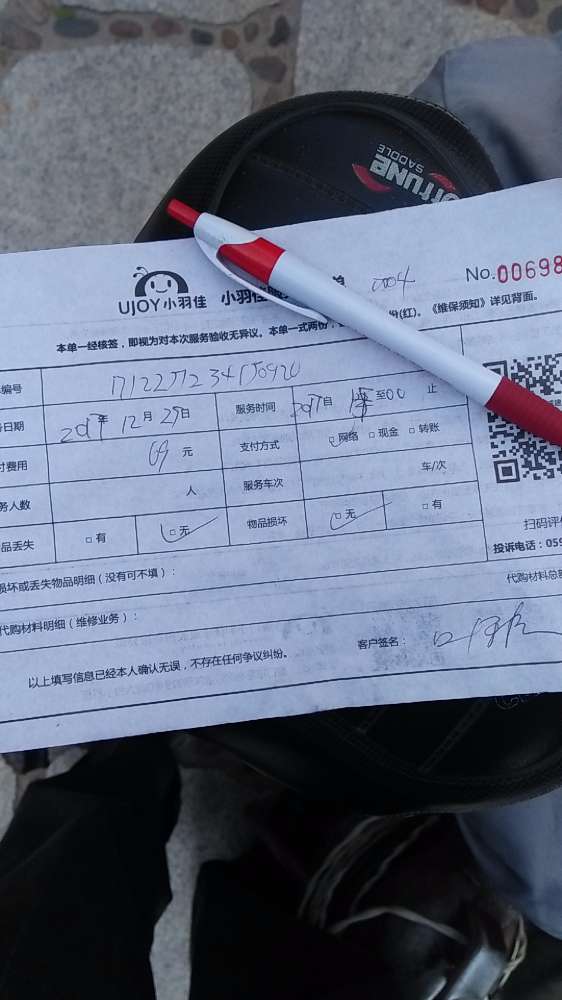 FORTUNE
SADDLE
UJOY小羽佳 小羽佳 单 0004 No.00698
本单一经核签，即视为对本次服务验收无异议。本单一式两份， 份(红)。《维保须知》详见背面。
编号
日期 2017年 12月 29日 服务时间 自 至00 止
付费用 69 元 支付方式 □网络 □现金 □转账
务人数 人 服务车次 车/次
品丢失 □有 □无 物品损坏 □无 □有
扫码评
投诉电话：059
损坏或丢失物品明细（没有可不填）：
代购材料总
代购材料明细（维修业务）：
以上填写信息已经本人确认无误，不存在任何争议纠纷。 客户签名：